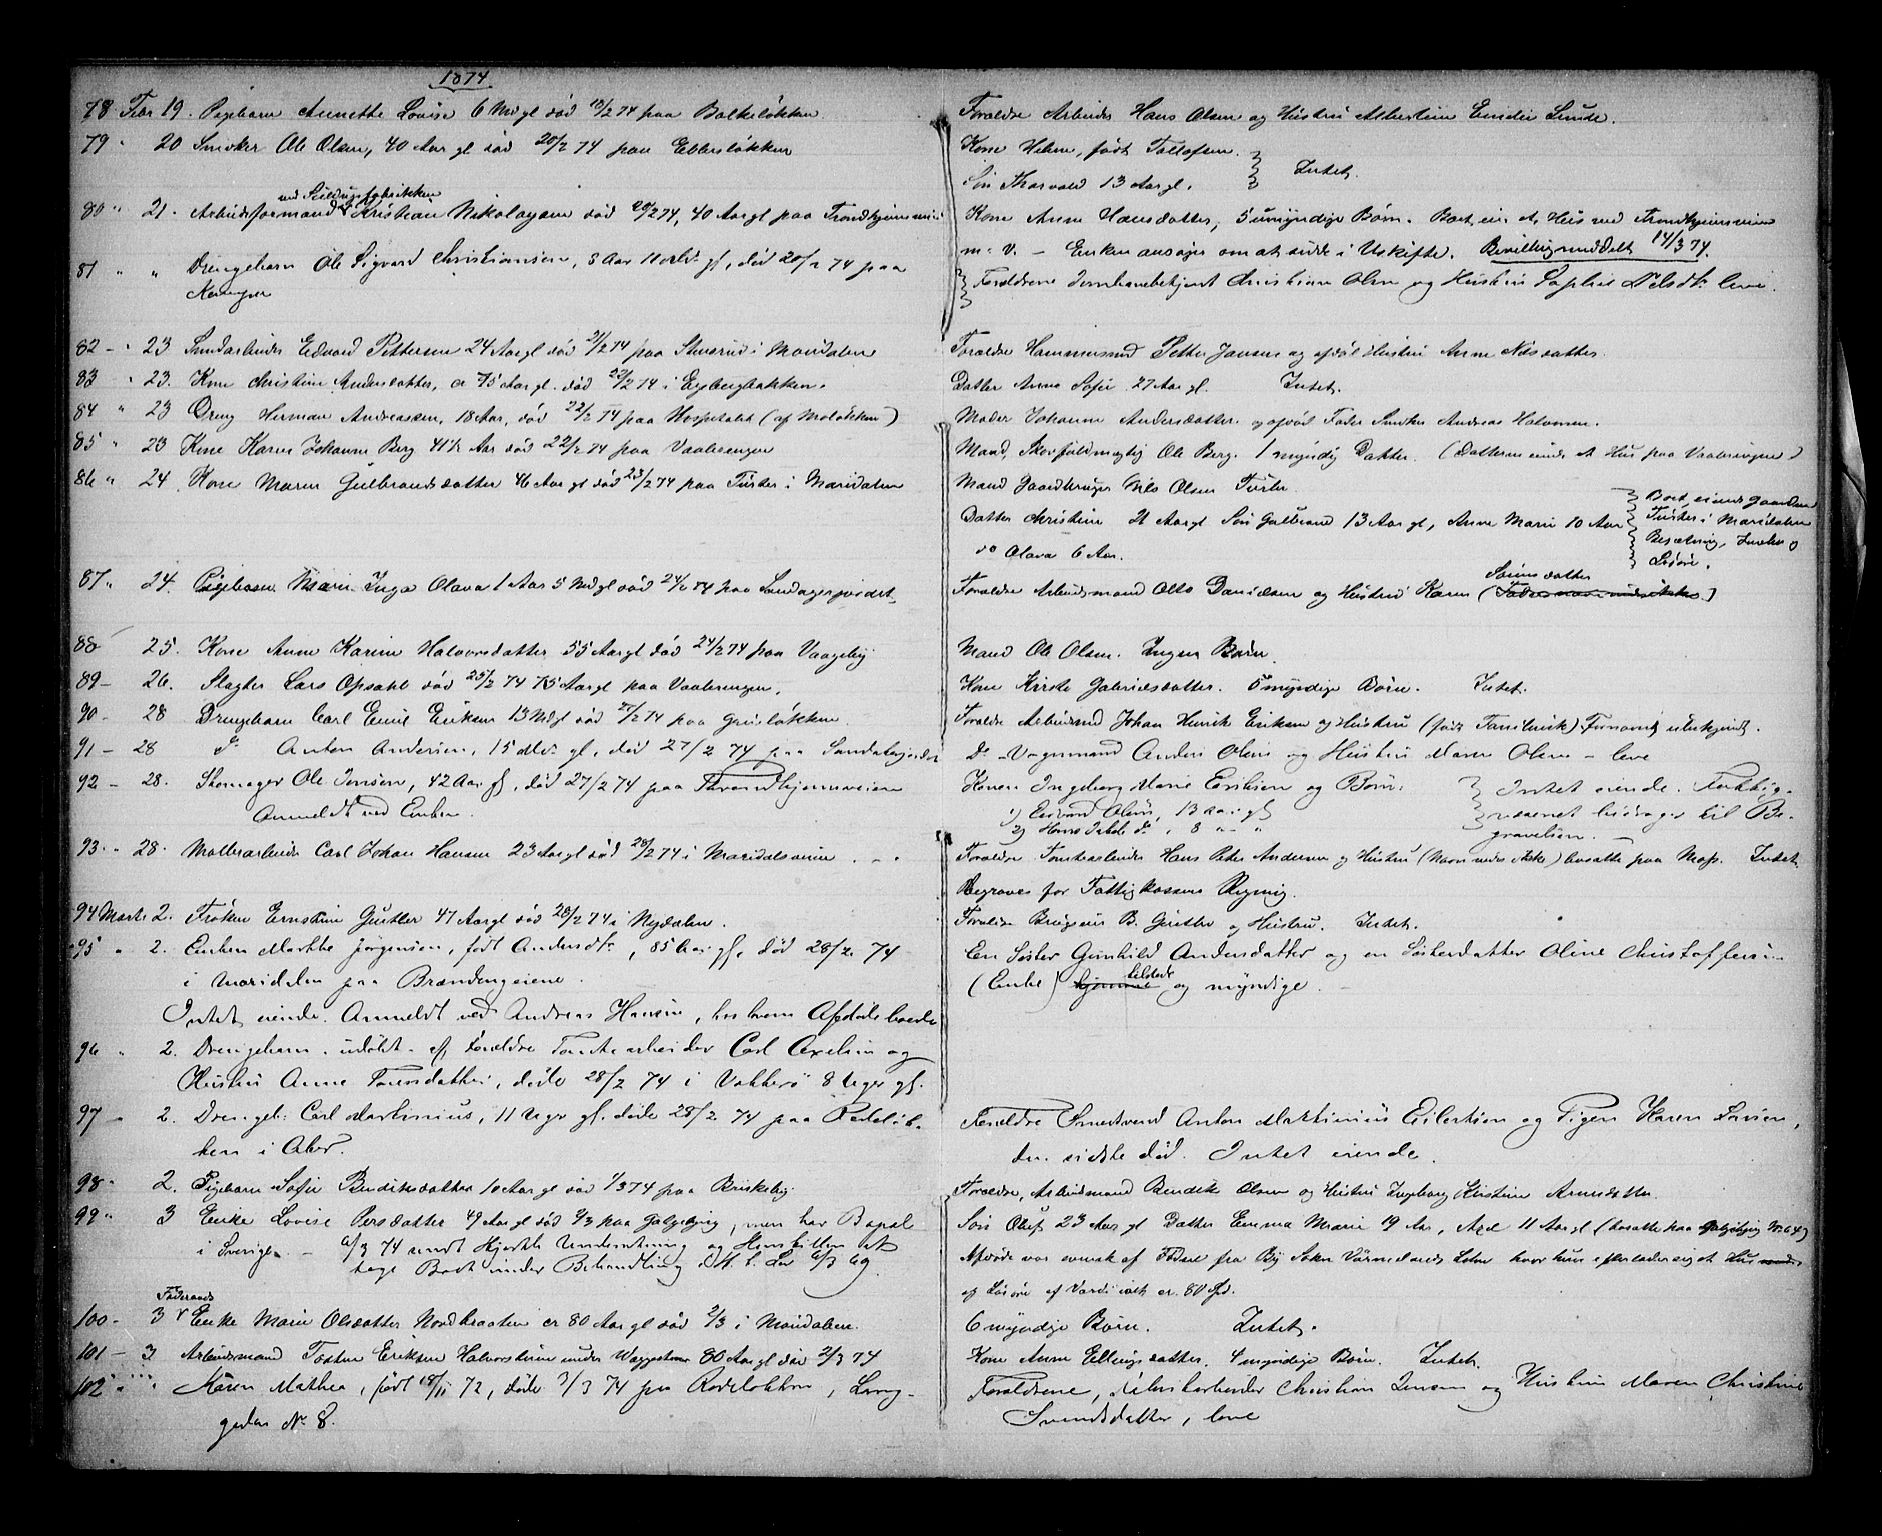 1874
78 Febr 19. Pigebarn Annette Lovise 6 Mdgl død 18/2 74 paa Balkeløkken
Forældre Arbeider Hans Olsen og Hustru Albertine Lunde.
79 " 20 Snedker Ole Olsen, 40 Aar gl død 20/2 74 paa Ebbesløkken
Kone Helene, født Tollefsen.
Søn Thorvald 13 Aar gl. Intet.
80 " 21. Arbeidsformand ved Kristian Nikolaysen død 20/2 74, 40 Aar gl paa Trondhjemsveien
Kone Anne Hansdatter, 5 umyndige Børn. Boet eier et Hus ved Trondhjemsveien
m. v. – Enken ansøger om at sidde i Uskifte. Bevilling meddelt 14/3 74.
81 " " Drengebarn Ole Sigvard Christiansen, 3 Aar 11 Mdr gl, død 20/2 74 paa
Kampen
Forældrene Jernbanebetjent Christian Olsen og Hustru Sophie Nelsdtr leve.
82 – " 23 Edvard Pettersen 24 Aar gl død 21/2 74 paa i Maridalen
Forældre Petter Jansen og afdøde Hustru Anne Nilsdatter.
83 " 23. Kone Christine Andersdatter, cr 75 Aar gl. død 22/2 74 i Egebergbakken.
Datter Anna Sofie 27 Aar gl. Intet.
84 " 23 Dreng Herman Andreassen, 18 Aar, død 22/2 74 paa Hospitalet (af Moløkken)
Moder Johanne Andersdatter og afdøde Fader Snedker Andreas Halvorsen.
85 " 23 Kone Karen Johanne Berg 41 1/2 Aar død 22/2 74 paa Vaalerengen
Mand, Ole Berg. 1 myndig Datter. (Datteren eiende et Hus paa Vaalerengen)
86 " 24 Kone Maren Gulbrandsdatter 46 Aar gl død 23/2 74 paa Turter i Maridalen
Mand Gaardbruger Nils Olsen Turter.
Datter Christine 21 Aar gl Søn Gulbrand 13 Aar gl, Anne Marie 10 Aar
do Olava 6 Aar.
Boet eiende Gaarden
Turter i Maridalen
Besætning, Indbo og
Løsøre.
87 " 24. Pigebarn Marie Inga Olava 1 Aar 5 Mdgl død 24/2 74 paa
Forældre Arbeidsmand Otto Danielsen og Hustru Karen (Sørensdatter)
88 25. Kone Anne Karine Halvorsdatter 55 Aar gl død 24/2 74 paa Vaageby
Mand Ole Olsen. Ingen Børn.
89 – 26. Slagter Lars Opsahl død 25/2 74 75 Aar gl paa Vaalerengen.
Kone Kirsti Gabrielsdatter. 5 myndige Børn. Intet.
90 – 28 Drengebarn Carl Emil Eriksen 13 Mdgl død 27/2 74 paa Grüsløkken
Forældre Arbeidsmd Johan Henrik Eriksen og Hustru (født Tanilsvik) Fornavnet ubekjendt.
91 – 28 Do Anton Andersen, 15 Mdr gl, død 27/2 74 paa
Do Vognmand Anders Olsen og Hustru Maren Olsen – leve
92 – 28. Skomager Ole Jensen, 42 Aar gl, død 27/2 74 paa Throndhjemsveien
Anmeldt ved Enken.
Konen Ingeborg Marie Eriksen og Børn:
1) Edvard Olsen, 13 aar gl
2) Hans Jakob do, 8 " – "
Intet eiende. Fattig-
væsenet bidrager til Be-
gravelsen. –
93. " 28. Møllearbeider Carl Johan Hansen 23 Aar gl død 28/2 74 i Maridalsveien
Forældre Hans Peter Andersen og Hustru (Navn vides ikke) bosatte paa Moss. Intet.
Begraves for Fattigkassens Regning.
94 Marts 2. Frøken Ernstine Günther 47 Aar gl død 28/2 74 i Nydalen.
Forældre B. Günther og Hustru. Intet.
95 " 2. Enken Marthe Jørgensen, født Andersdtr, 85 Aar gl, død 28/2 74
i Maridalen paa Brændengeiene.
Intet eiende. Anmeldt ved Andreas Hansen, hos hvem Afdøde boede
En Søster Gunhild Andersdatter og en Søsterdatter Oline Christoffersen
(Enke) tilstede og myndige. –
96 " 2. Drengebarn, udøbt, af Forældre Tomtearbeider Carl Axelsen og
Hustru Anne Toresdatter, døde 28/2 74 i Vækkerø 8 Uger gl.
97 " 2. Drengeb. Carl Martinius, 11 Uger gl. døde 28/2 74 paa Rodeløk-
ken i Aker.
Forældre Smedsvend Anton Martinius Eilertsen og Pigen Karen Larsen,
den sidste død. Intet eiende.
98 " 2. Pigebarn Sofie Bendiksdatter 10 Aar gl død 1/3 74 paa Briskeby.
Forældre, Arbeidsmand Bendik Olsen og Hustru Ingeborg Kirstine
99 " 3 Enke Lovise Persdatter 49 Aar gl død 2/3 paa Galgeberg, men har Bopæl
i Sverige. – 6/3 74 sendt Underretning og Henstillen at
tage Boet under Behandling
Søn Olof, 23 Aar gl Datter Emma Marie 19 Aar, Axel 11 Aar gl (bosatte paa Galgeberg No 64)
Afdøde var svensk af Fødsel fra By Sokn Värmelands Lehn hvor hun efterlader sig et Hus
og Løsøre af Værdi ialt cr. 80 Spd.
100 – 3 Føderaads Enke Marie Olsdatter Nordbraaten cr 80 Aar gl død 2/3 i Maridalen.
6 myndige Børn. Intet.
101 – 3 Arbeidsmand Eriksen under 80 Aar gl død 2/3 74
Kone Anne Ellingsdatter. 4 myndige Børn. Intet.
102 " " Karen Mathea, født 18/11 72, døde 3/3 74 paa Rodeløkken, Lang-
gaden No 8.
Forældrene, Fabrikarbeider Christian Jensen og Hustru Maren Christine
Svendsdatter, leve